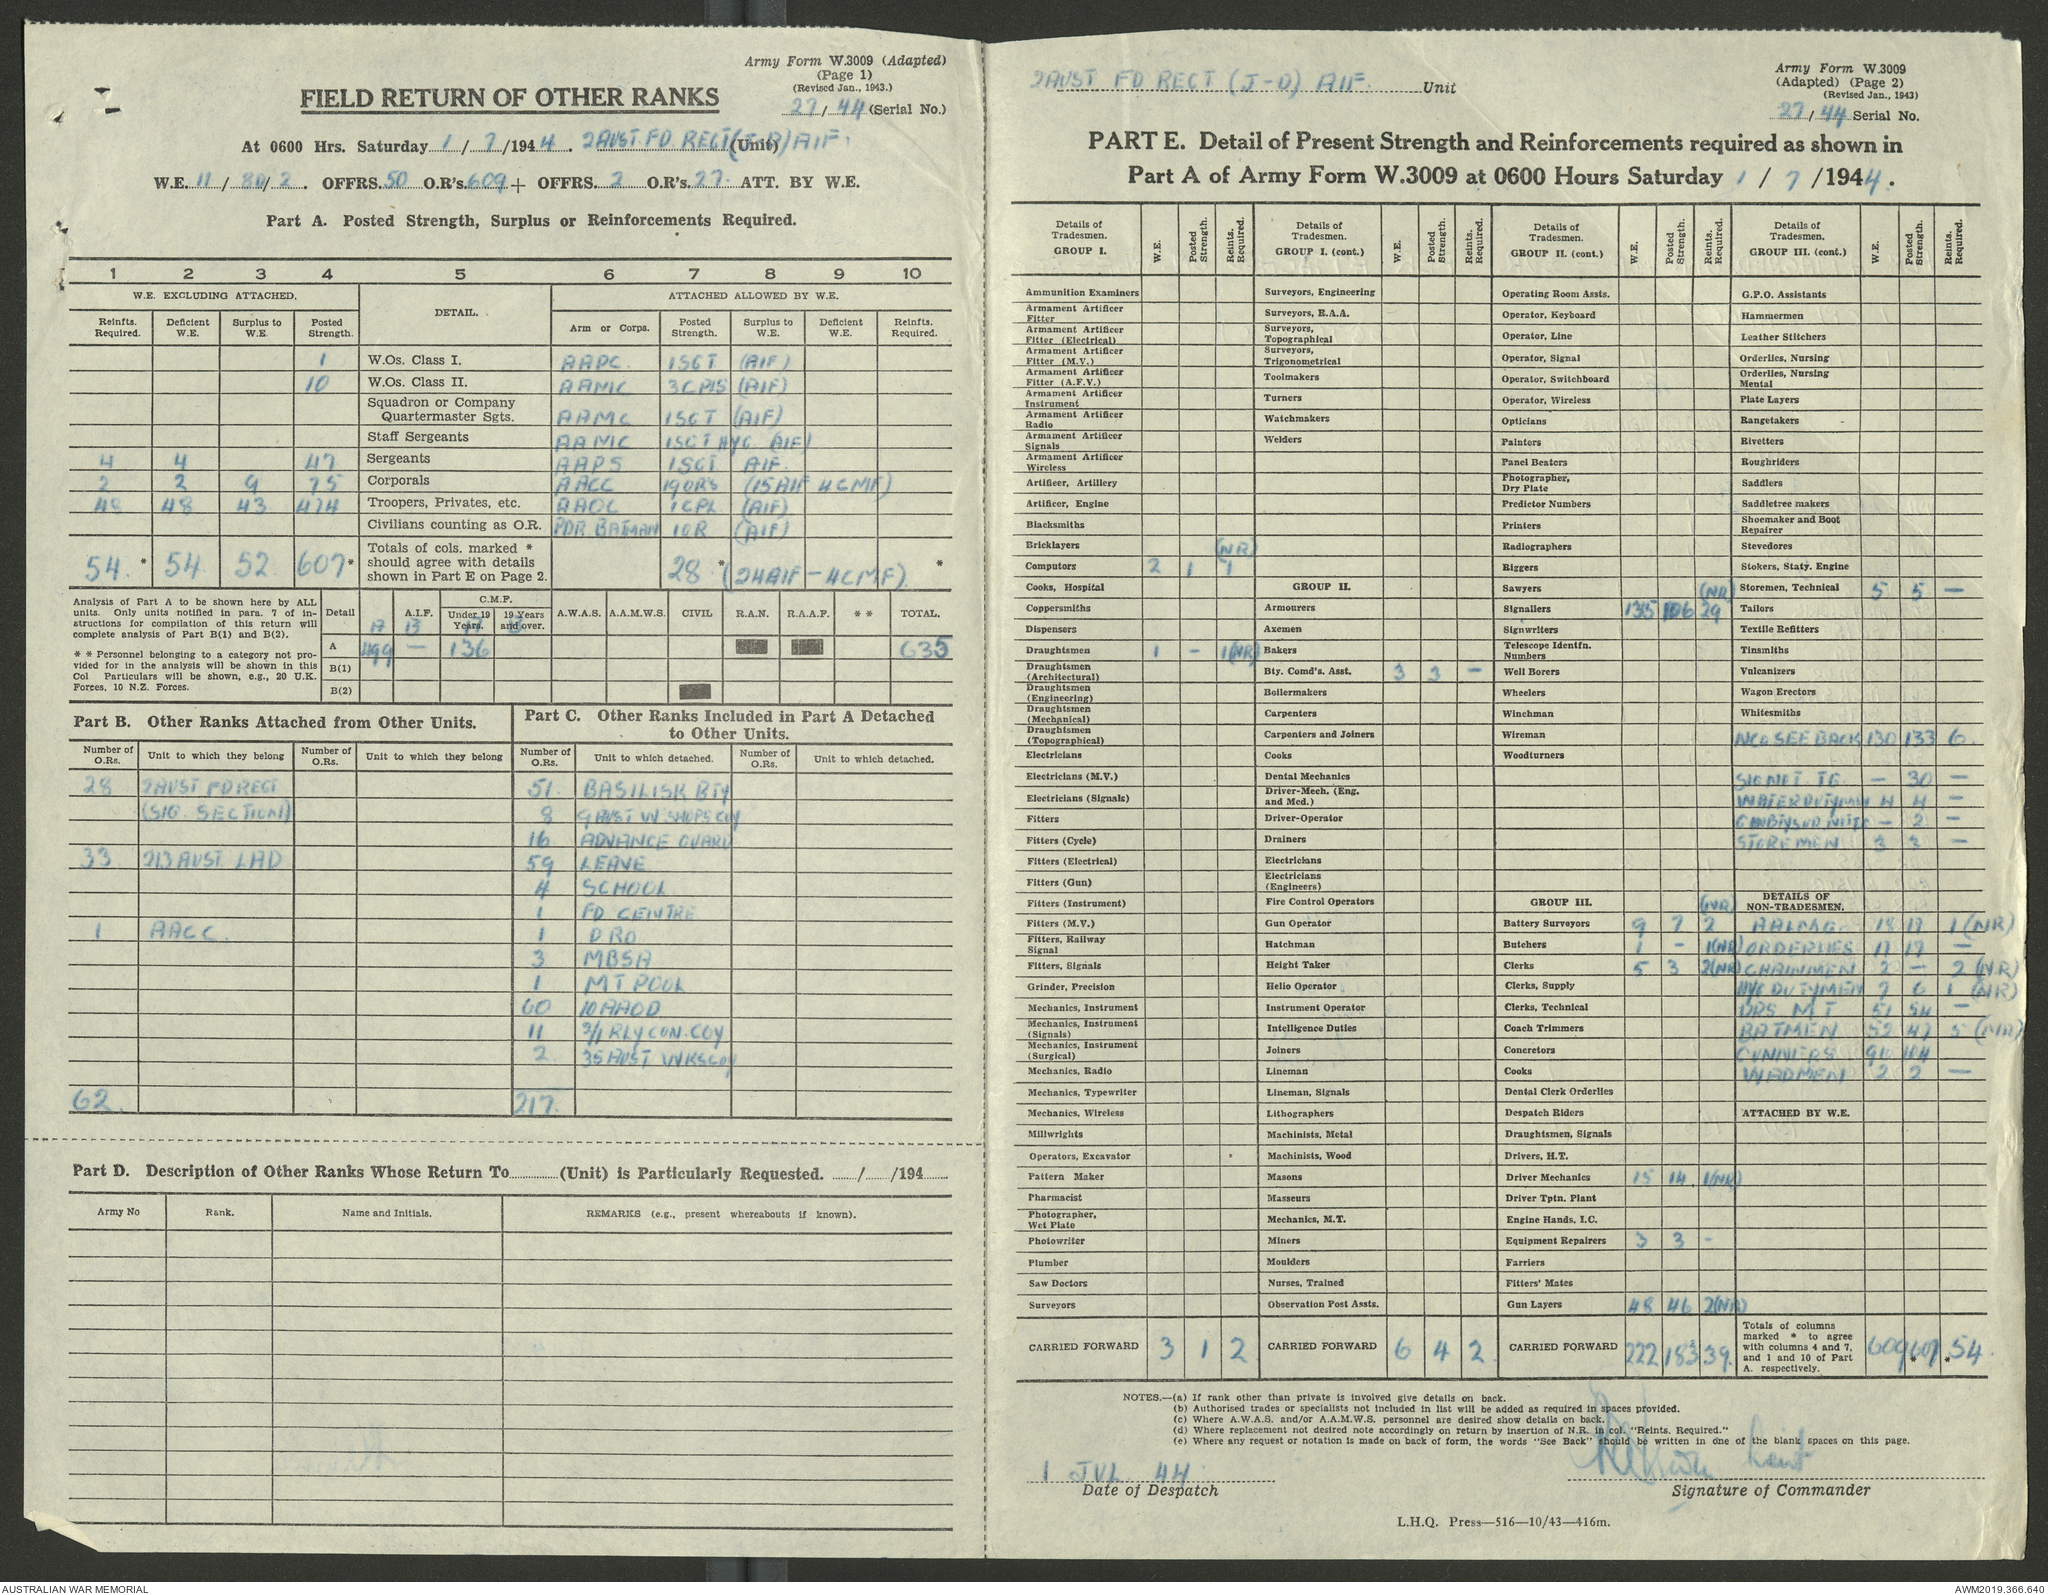 Army Form W.3009 (Adapted)
(Page 1)
(Revised Jan., 1943.)
27/44 (Serial No.)
FIELD RETURN OF OTHER RANKS
At 0600 Hrs. Saturday 1/7/1944. 2 AUST FD REGT (J-D) AIF. (Unit)
W.E. 11/80/2. OFFRS. 50 O.R's. 609 + OFFRS. 2 O.R's. 27. ATT. BY W.E.
Part A. Posted Strength, Surplus or Reinforcements Required.
1 2 3 4 5 6 7 8 9 10
W.E. EXCLUDING ATTACHED. DETAIL. ATTACHED ALLOWED BY W.E.
Reinfts. Required. Deficient W.E. Surplus to W.E. Posted Strength. Arm or Corps. Posted Strength. Surplus to W.E. Deficient W.E. Reinfts. Required.
1 W.Os. Class I. AAPC 1 SGT (AIF)
10 W.Os. Class II. AAMC 3 CPLS (AIF)
Squadron or Company Quartermaster Sgts. AAMC 1 SGT (AIF)
Staff Sergeants AAMC 1 SGT HYG. (AIF)
4 4 47 Sergeants AAPS 1 SGT AIF.
2 2 9 75 Corporals AACC 19 ORS (15 AIF 4 CMF)
48 48 43 474 Troopers, Privates, etc. AAOC 1 CPL (AIF)
Civilians counting as O.R. PDR. BATMAN 1 OR (AIF)
54 * 54 52 607 * Totals of cols. marked * should agree with details shown in Part E on Page 2. 28 * (24 AIF - 4 CMF) *
Analysis of Part A to be shown here by ALL units. Only units notified in para. 7 of instructions for compilation of this return will complete analysis of Part B(1) and B(2).
* * Personnel belonging to a category not provided for in the analysis will be shown in this Col Particulars will be shown, e.g., 20 U.K. Forces, 10 N.Z. Forces.
Detail A.I.F. C.M.F. Under 19 Years. 19 Years and over. A.W.A.S. A.A.M.W.S. CIVIL R.A.N. R.A.A.F. * * TOTAL.
A B A B
A 499 — 136 635
B(1)
B(2)
Part B. Other Ranks Attached from Other Units.
Number of O.Rs. Unit to which they belong Number of O.Rs. Unit to which they belong
28 2 AUST FD REGT
(SIG. SECTION)
33 213 AUST LAD
1 AACC.
62.
Part C. Other Ranks Included in Part A Detached to Other Units.
Number of O.Rs. Unit to which detached. Number of O.Rs. Unit to which detached.
51 BASILISK BTY
8 9 AUST W.SHOPS COY
16 ADVANCE GUARD
59 LEAVE
4 SCHOOL
1 FD CENTRE
1 DRO
3 MBSA
1 MT POOL
60 10 AAOD
11 2/1 RLY CON. COY
2 35 AUST WKS COY
217.
Part D. Description of Other Ranks Whose Return To (Unit) is Particularly Requested. / /194
Army No Rank. Name and Initials. REMARKS (e.g., present whereabouts if known).
2 AUST FD REGT (J-D) AIF. Unit
Army Form W.3009
(Adapted) (Page 2)
(Revised Jan., 1943)
27/44 Serial No.
PART E. Detail of Present Strength and Reinforcements required as shown in
Part A of Army Form W.3009 at 0600 Hours Saturday 1/7/1944.
Details of Tradesmen. GROUP I. W.E. Posted Strength. Reints. Required.
Ammunition Examiners
Armament Artificer Fitter
Armament Artificer Fitter (Electrical)
Armament Artificer Fitter (M.V.)
Armament Artificer Fitter (A.F.V.)
Armament Artificer Instrument
Armament Artificer Radio
Armament Artificer Signals
Armament Artificer Wireless
Artificer, Artillery
Artificer, Engine
Blacksmiths
Bricklayers (NR)
Computors 2 1 1
Cooks, Hospital
Coppersmiths
Dispensers
Draughtsmen 1 - 1(NR)
Draughtsmen (Architectural)
Draughtsmen (Engineering)
Draughtsmen (Mechanical)
Draughtsmen (Topographical)
Electricians
Electricians (M.V.)
Electricians (Signals)
Fitters
Fitters (Cycle)
Fitters (Electrical)
Fitters (Gun)
Fitters (Instrument)
Fitters (M.V.)
Fitters, Railway Signal
Fitters, Signals
Grinder, Precision
Mechanics, Instrument
Mechanics, Instrument (Signals)
Mechanics, Instrument (Surgical)
Mechanics, Radio
Mechanics, Typewriter
Mechanics, Wireless
Millwrights
Operators, Excavator
Pattern Maker
Pharmacist
Photographer, Wet Plate
Photowriter
Plumber
Saw Doctors
Surveyors
CARRIED FORWARD 3 1 2
Details of Tradesmen. GROUP I. (cont.) W.E. Posted Strength. Reints. Required.
Surveyors, Engineering
Surveyors, R.A.A.
Surveyors, Topographical
Surveyors, Trigonometrical
Toolmakers
Turners
Watchmakers
Welders
GROUP II.
Armourers
Axemen
Bakers
Bty. Comd's. Asst. 3 3 —
Boilermakers
Carpenters
Carpenters and Joiners
Cooks
Dental Mechanics
Driver-Mech. (Eng. and Med.)
Driver-Operator
Drainers
Electricians
Electricians (Engineers)
Fire Control Operators
Gun Operator
Hatchman
Height Taker
Helio Operator
Instrument Operator
Intelligence Duties
Joiners
Lineman
Lineman, Signals
Lithographers
Machinists, Metal
Machinists, Wood
Masons
Masseurs
Mechanics, M.T.
Miners
Moulders
Nurses, Trained
Observation Post Assts.
CARRIED FORWARD 6 4 2
Details of Tradesmen. GROUP II. (cont.) W.E. Posted Strength. Reints. Required.
Operating Room Assts.
Operator, Keyboard
Operator, Line
Operator, Signal
Operator, Switchboard
Operator, Wireless
Opticians
Painters
Panel Beaters
Photographer, Dry Plate
Predictor Numbers
Printers
Radiographers
Riggers
Sawyers (NR)
Signallers 135 106 29
Signwriters
Telescope Identfn. Numbers
Well Borers
Wheelers
Winchman
Wireman
Woodturners
GROUP III. (NR)
Battery Surveyors 9 7 2
Butchers 1 - 1(NR)
Clerks 5 3 2(NR)
Clerks, Supply
Clerks, Technical
Coach Trimmers
Concretors
Cooks
Dental Clerk Orderlies
Despatch Riders
Draughtsmen, Signals
Drivers, H.T.
Driver Mechanics 15 14 1(NR)
Driver Tptn. Plant
Engine Hands, I.C.
Equipment Repairers 3 3 -
Farriers
Fitters' Mates
Gun Layers 48 46 2(NR)
CARRIED FORWARD 222 183 39.
Details of Tradesmen. GROUP III. (cont.) W.E. Posted Strength. Reints. Required.
G.P.O. Assistants
Hammermen
Leather Stitchers
Orderlies, Nursing
Orderlies, Nursing Mental
Plate Layers
Rangetakers
Rivetters
Roughriders
Saddlers
Saddletree makers
Shoemaker and Boot Repairer
Stevedores
Stokers, Staty. Engine
Storemen, Technical 5 5 —
Tailors
Textile Refitters
Tinsmiths
Vulcanizers
Wagon Erectors
Whitesmiths
NCO SEE BACK 130 133 6
SIGNET TG — 30 —
WATER DUTYMEN 4 4 —
— 2 —
STOREMEN 3 3 —
DETAILS OF NON-TRADESMEN.
AALMG 18 17 1 (NR)
ORDERLIES 17 17 —
CHAINMEN 2 — 2 (NR)
HYG DUTYMEN 7 6 1 (NR)
DRS MT 51 54 —
BATMEN 52 47 5 (NR)
GUNNERS 90 104
WADMEN 2 2 —
ATTACHED BY W.E.
Totals of columns marked * to agree with columns 4 and 7, and 1 and 10 of Part A. respectively. 609 607 * * 54.
NOTES.—(a) If rank other than private is involved give details on back.
(b) Authorised trades or specialists not included in list will be added as required in spaces provided.
(c) Where A.W.A.S. and/or A.A.M.W.S. personnel are desired show details on back.
(d) Where replacement not desired note accordingly on return by insertion of N.R. in col. "Reints. Required."
(e) Where any request or notation is made on back of form, the words "See Back" should be written in one of the blank spaces on this page.
1 JUL 44
Date of Despatch
Lieut
Signature of Commander
L.H.Q. Press—516—10/43—416m.
AUSTRALIAN WAR MEMORIAL
AWM2019.366.640